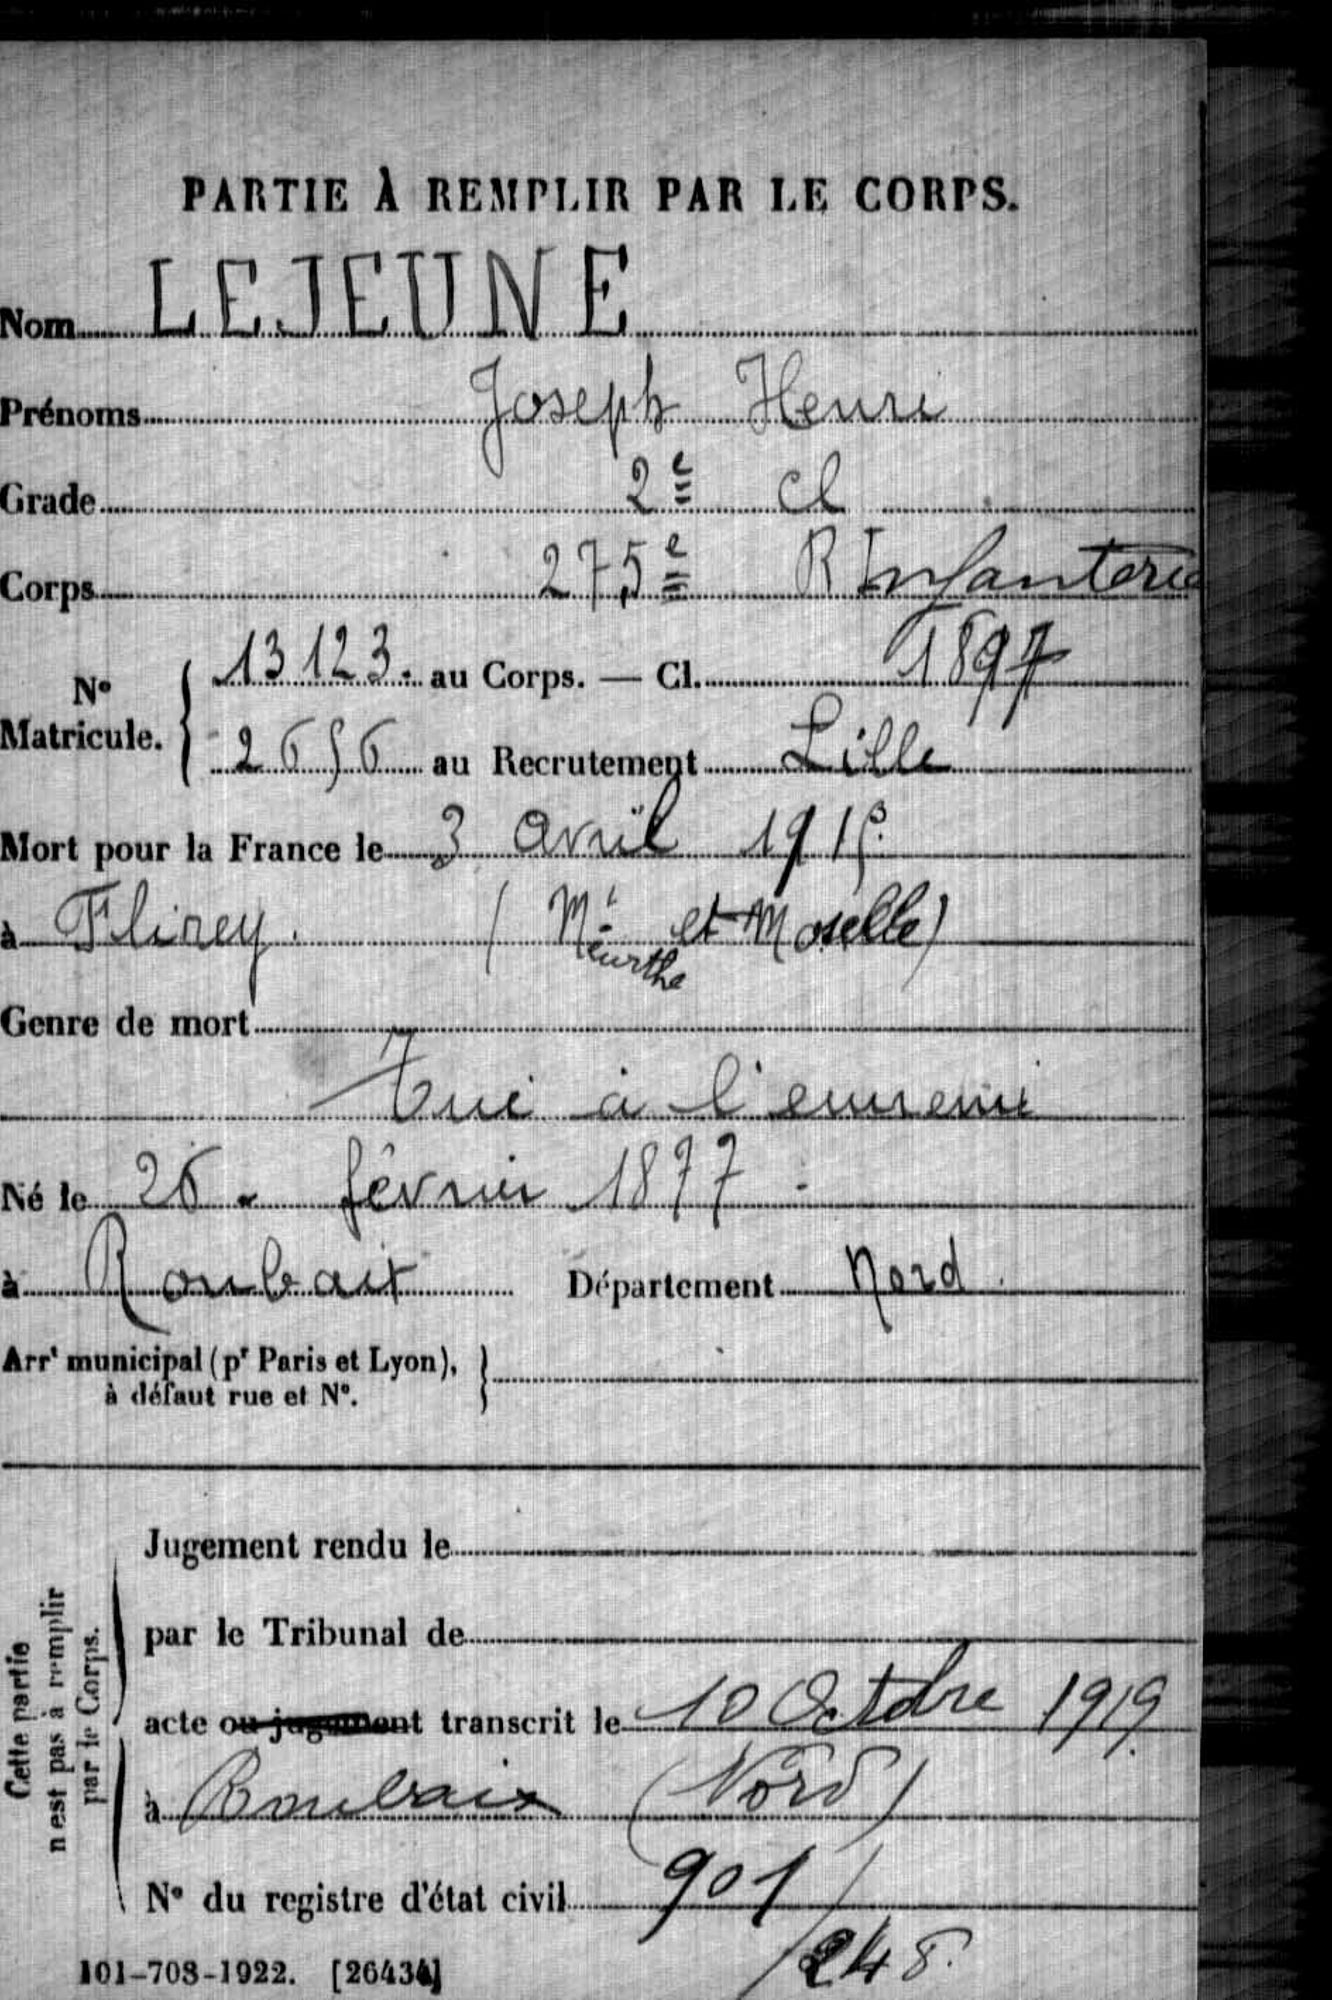 PARTIE À REMPLIR PAR LE CORPS.
Nom LEJEUNE
Prénoms Joseph Henri
Grade 2e cl
Corps 275e R Infanterie
No Matricule. { 13123. au Corps. — Cl. 1897
2656 au Recrutement Lille
Mort pour la France le 3 avril 1915.
à Flirey. (Mthe et Moselle)
Meurthe
Genre de mort
Tué à l'ennemi
Né le 26 février 1877
à Roubaix Département Nord.
Arrt municipal (pr Paris et Lyon), }
à défaut rue et No.
Cette partie
n'est pas à remplir
par le Corps.
Jugement rendu le
par le Tribunal de
acte ou jugement transcrit le 10 Octobre 1919
à Roubaix (Nord)
No du registre d'état civil 901/
248.
101-708-1922. [26434]